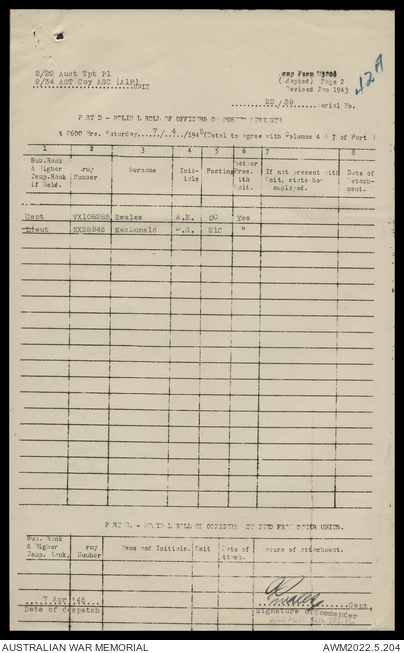 2/22 Aust Tpt Pl
2/34 AGT Coy ASC (AIF)
UNIT
(Adapted) Page 2
Revised Jan 1943
42A
22 /39 Serial No.
PART D - NOMINAL ROLL OF OFFICERS ON POSTED STRENGTH
at 0600 Hrs. Saturday 7 / 4 /1945 (Total to agree with Columns 4 & 7 of Part
1 2 3 4 5 6 7 8
Sub.Rank & Higher Temp.Rank if Held. Army Number Surname Init- ials Posting Whether Pres. with Unit. If not present with Unit, state how employed. Date of Attach- ment.
Capt VX108285 Swales A.E. OC Yes
Lieut NX28946 MacDonald D.G. 2IC "
PART E. - NOMINAL ROLL OF OFFICERS ATTACHED FROM OTHER UNITS.
Sub. Rank & Higher Temp. Rank. Army Number Name and Initials. Unit Date of Attach. Nature of attachment.
7 Apr '45 Capt.
Date of despatch Signature of Commander
AUSTRALIAN WAR MEMORIAL AWM2022.5.204